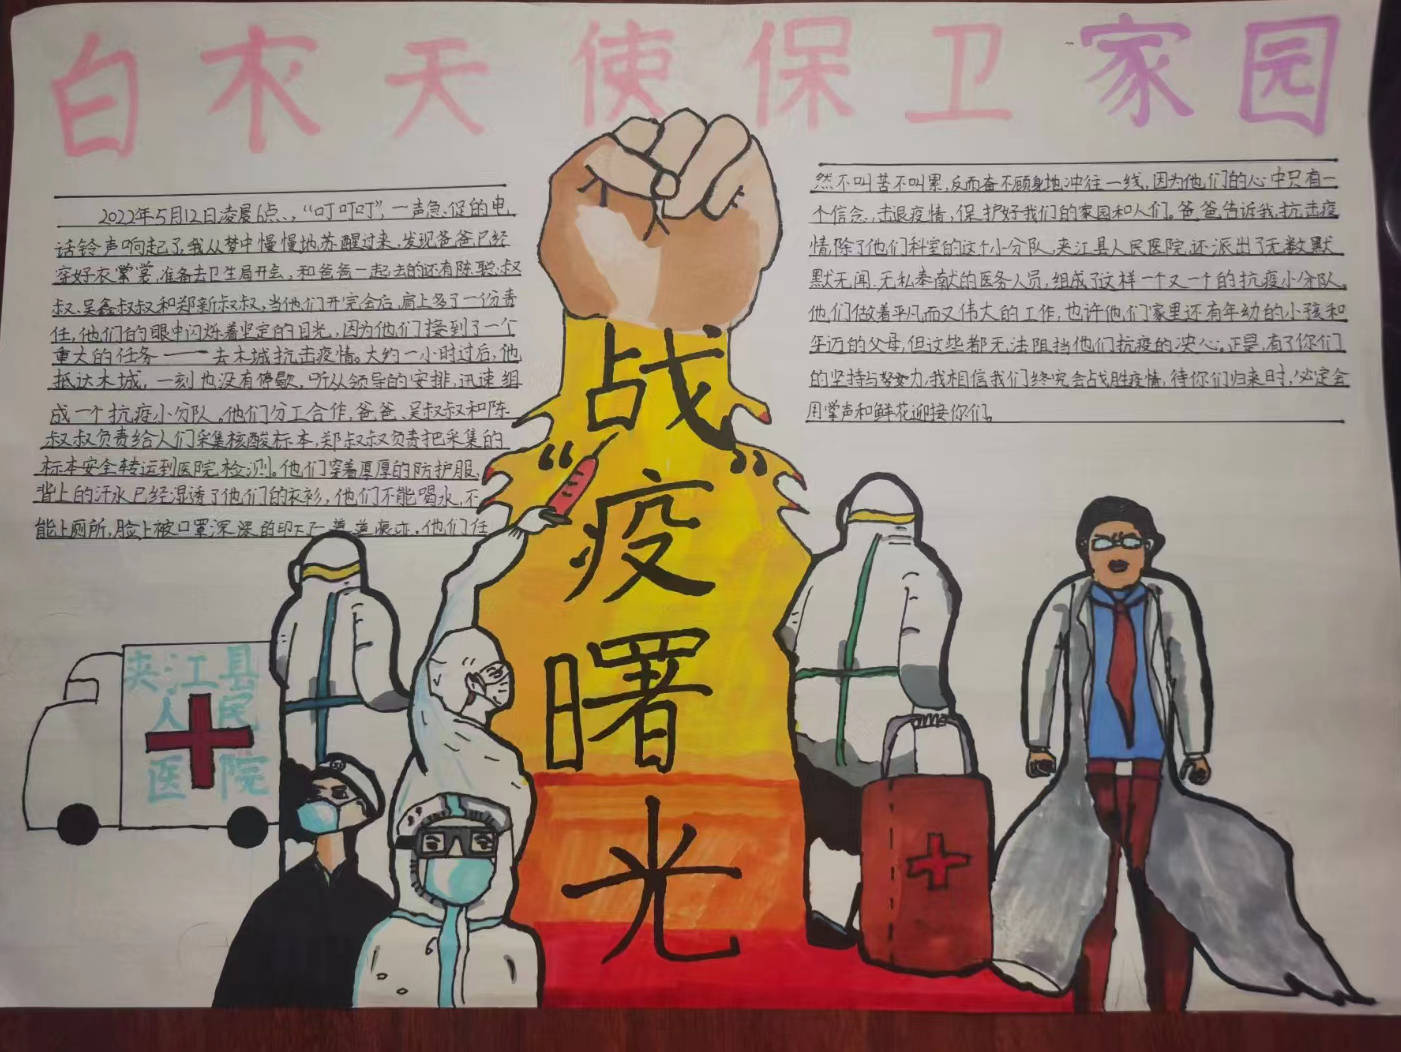 白衣天使保卫家园
2022年5月12日凌晨6点、，“叮叮叮”，一声急促的电
话铃声响起了，我从梦中慢慢地苏醒过来，发现爸爸已经
穿好衣裳，准备去卫生局开会，和爸爸一起去的还有陈聪叔
叔、吴鑫叔叔和郑新叔叔，当他们开完会后，肩上多了一份责
任，他们的眼中闪烁着坚定的目光，因为他们接到了一个
重大的任务——去木城抗击疫情。大约一小时过后，他
抵达木城，一刻也没有停歇。听从领导的安排，迅速组
成一个抗疫小分队。他们分工合作，爸爸、吴叔叔和陈
叔叔负责给人们采集核酸标本，郑叔叔负责把采集的
标本安全转运到医院检测。他们穿着厚厚的防护服，
背上的汗水已经湿透了他们的衣衫，他们不能喝水，不
能上厕所，脸上被口罩深深的印下一道道痕迹。他们任
然不叫苦不叫累，反而奋不顾身地冲往一线，因为他们的心中只有一
个信念，击退疫情，保护好我们的家园和人们。爸爸告诉我，抗击疫
情，除了他们科室的这个小分队，夹江县人民医院，还派出了无数默
默无闻，无私奉献的医务人员，组成了这样一个又一个的抗疫小分队。
他们做着平凡而又伟大的工作，也许他们家里还有年幼的小孩和
年迈的父母，但这些都无法阻挡他们抗疫的决心。正是，有了你们
的坚持与努力，我相信我们终究会战胜疫情，待你们归来时，必定会
用掌声和鲜花迎接你们。
“战疫”曙光
夹江县
人民
医院